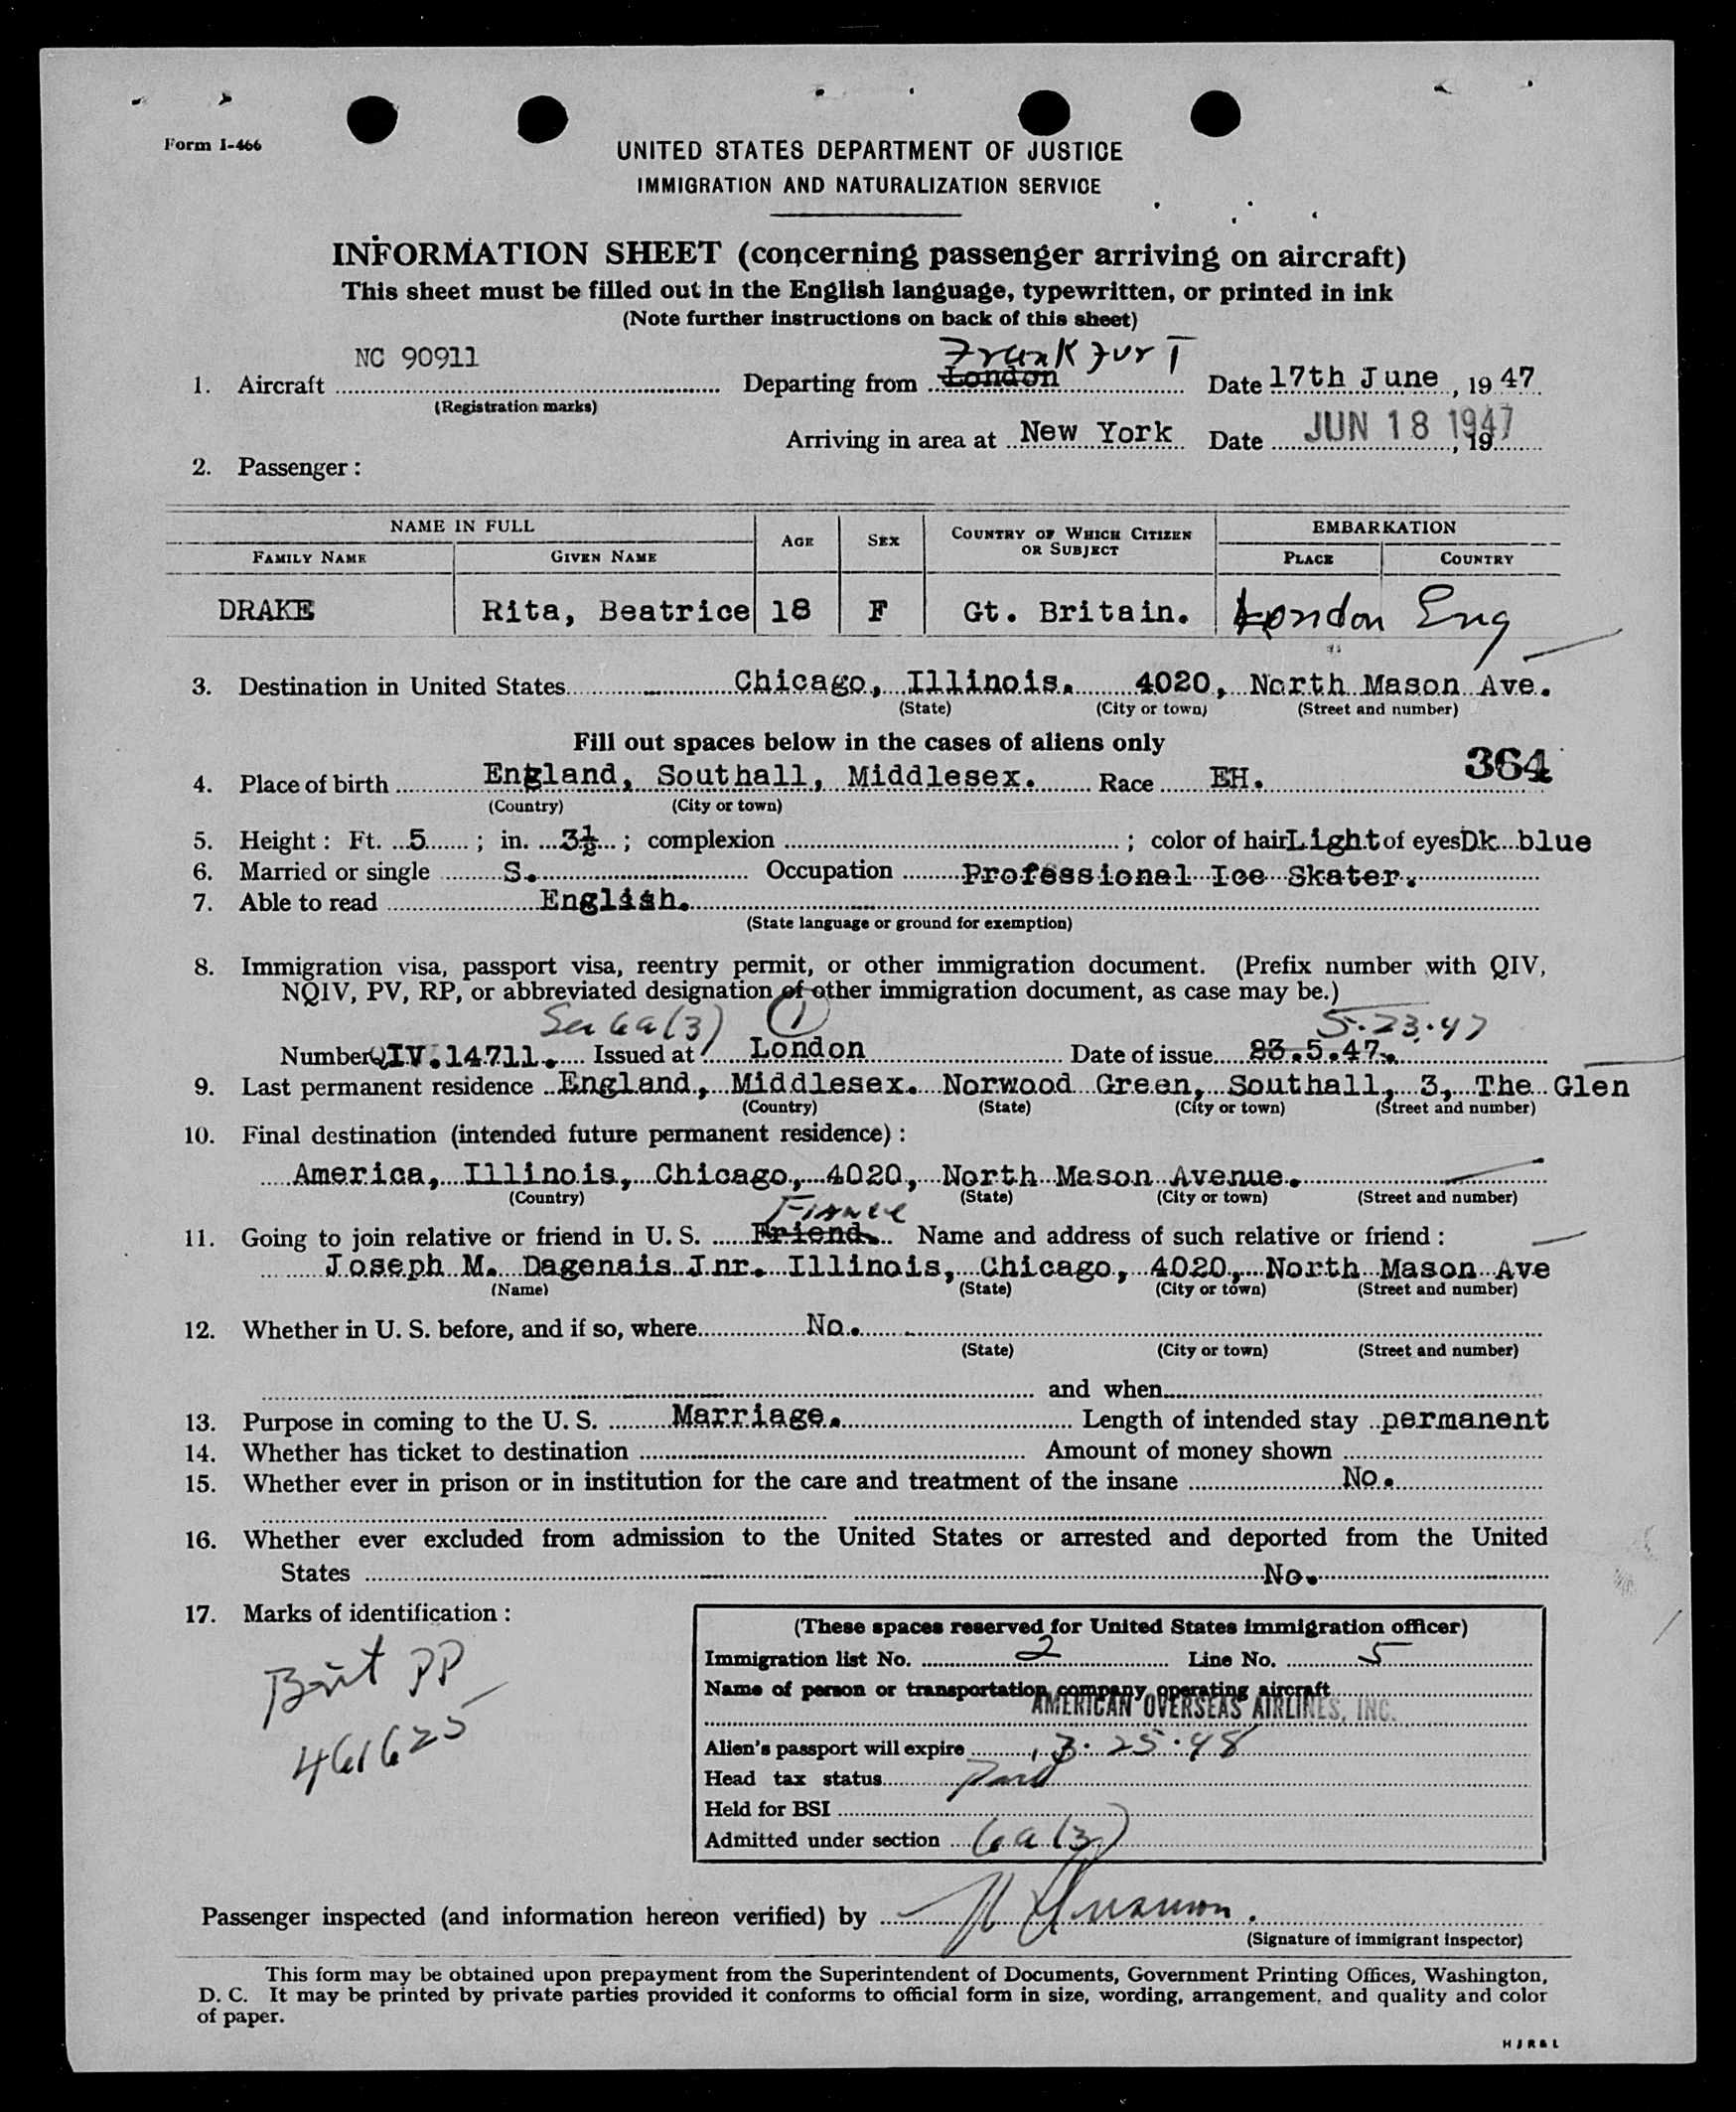 Form I-466
UNITED STATES DEPARTMENT OF JUSTICE
IMMIGRATION AND NATURALIZATION SERVICE
INFORMATION SHEET (concerning passenger arriving on aircraft)
This sheet must be filled out in the English language, typewritten, or printed in ink
(Note further instructions on back of this sheet)
NC 90911 Frankfurt
1. Aircraft Departing from London Date 17th June, 19 47
(Registration marks)
Arriving in area at New York Date JUN 18 1947, 19
2. Passenger:
NAME IN FULL AGE SEX COUNTRY OF WHICH CITIZEN OR SUBJECT EMBARKATION
FAMILY NAME GIVEN NAME PLACE COUNTRY
DRAKE Rita, Beatrice 18 F Gt. Britain. London Eng
3. Destination in United States Chicago, Illinois. 4020, North Mason Ave.
(State) (City or town) (Street and number)
Fill out spaces below in the cases of aliens only
364
4. Place of birth England, Southall, Middlesex. Race EH.
(Country) (City or town)
5. Height: Ft. 5; in. 3½; complexion ; color of hair Light of eyes Dk. blue
6. Married or single S. Occupation Professional Ice Skater.
7. Able to read English.
(State language or ground for exemption)
8. Immigration visa, passport visa, reentry permit, or other immigration document. (Prefix number with QIV,
NQIV, PV, RP, or abbreviated designation of other immigration document, as case may be.)
Sec 6a(3) 1 5.23.47
Number QIV.14711. Issued at London Date of issue 23.5.47.
9. Last permanent residence England, Middlesex. Norwood Green, Southall, 3, The Glen
(Country) (State) (City or town) (Street and number)
10. Final destination (intended future permanent residence):
America, Illinois, Chicago, 4020, North Mason Avenue.
(Country) (State) (City or town) (Street and number)
Fiance
11. Going to join relative or friend in U. S. Friend. Name and address of such relative or friend:
Joseph M. Dagenais Jnr. Illinois, Chicago, 4020, North Mason Ave
(Name) (State) (City or town) (Street and number)
12. Whether in U. S. before, and if so, where No.
(State) (City or town) (Street and number)
and when
13. Purpose in coming to the U. S. Marriage. Length of intended stay permanent
14. Whether has ticket to destination Amount of money shown
15. Whether ever in prison or in institution for the care and treatment of the insane No.
16. Whether ever excluded from admission to the United States or arrested and deported from the United
States No.
17. Marks of identification:
Brit PP
461625
(These spaces reserved for United States immigration officer)
Immigration list No. 2 Line No. 5
Name of person or transportation company operating aircraft
AMERICAN OVERSEAS AIRLINES, INC.
Alien's passport will expire 3.25.48
Head tax status Paid
Held for BSI
Admitted under section 6a(3)
Passenger inspected (and information hereon verified) by
(Signature of immigrant inspector)
This form may be obtained upon prepayment from the Superintendent of Documents, Government Printing Offices, Washington,
D. C. It may be printed by private parties provided it conforms to official form in size, wording, arrangement, and quality and color
of paper.
H J R & L